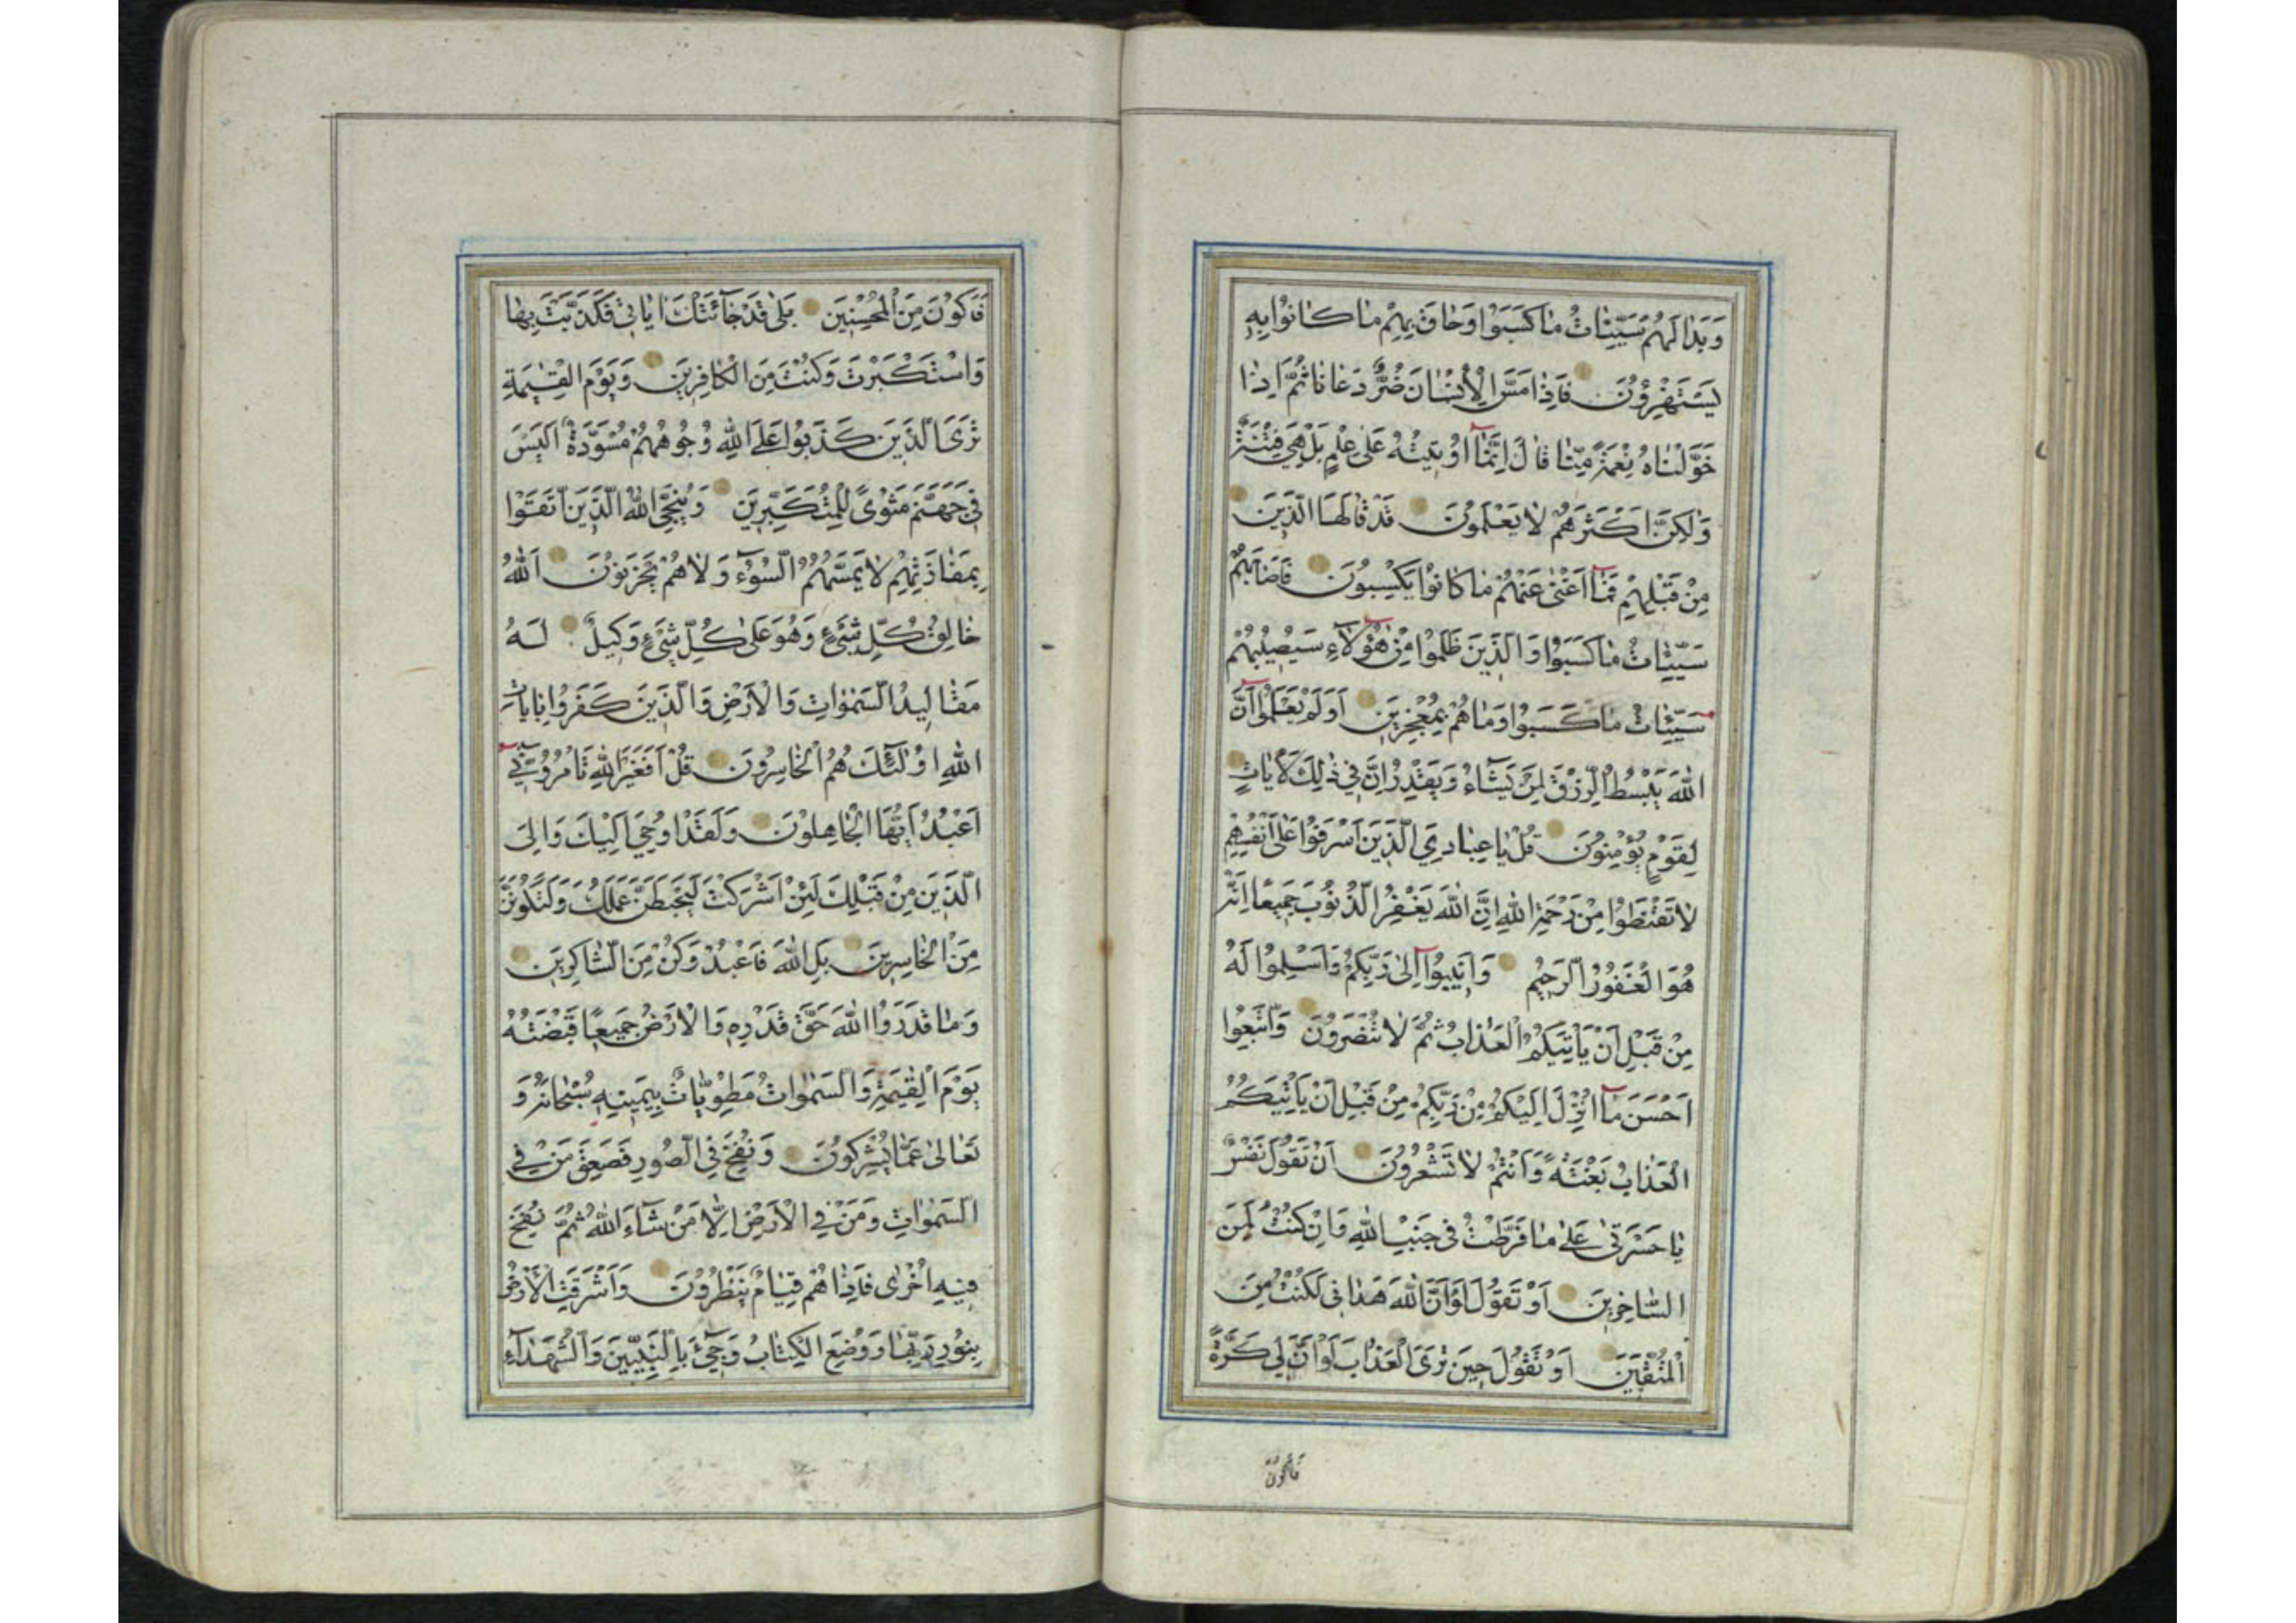 وَبَدَا لَهُمْ سَيِّئَاتُ مَا كَسَبُوا وَحَاقَ بِهِمْ مَا كَانُوا بِهِ
يَسْتَهْزِؤُنَ فَاِذَا مَسَّ الْاِنْسَانَ ضُرٌّ دَعَانَا ثُمَّ اِذَا
خَوَّلْنَاهُ نِعْمَةً مِنَّا قَالَ اِنَّمَا اُوتِيتُهُ عَلٰى عِلْمٍ بَلْ هِيَ فِتْنَةٌ
وَلٰكِنَّ اَكْثَرَهُمْ لَا يَعْلَمُونَ قَدْ قَالَهَا الَّذِينَ
مِنْ قَبْلِهِمْ فَمَا اَغْنٰى عَنْهُمْ مَا كَانُوا يَكْسِبُونَ فَاَصَابَهُمْ
سَيِّئَاتُ مَا كَسَبُوا وَالَّذِينَ ظَلَمُوا مِنْ هٰؤُلَاءِ سَيُصِيبُهُمْ
سَيِّئَاتُ مَا كَسَبُوا وَمَا هُمْ بِمُعْجِزِينَ اَوَلَمْ يَعْلَمُوا اَنَّ
اللّٰهَ يَبْسُطُ الرِّزْقَ لِمَنْ يَشَاءُ وَيَقْدِرُ اِنَّ فِي ذٰلِكَ لَاٰيَاتٍ
لِقَوْمٍ يُؤْمِنُونَ قُلْ يَا عِبَادِيَ الَّذِينَ اَسْرَفُوا عَلٰى اَنْفُسِهِمْ
لَا تَقْنَطُوا مِنْ رَحْمَةِ اللّٰهِ اِنَّ اللّٰهَ يَغْفِرُ الذُّنُوبَ جَمِيعًا اِنَّهُ
هُوَ الْغَفُورُ الرَّحِيمُ وَاَنِيبُوا اِلٰى رَبِّكُمْ وَاَسْلِمُوا لَهُ
مِنْ قَبْلِ اَنْ يَأْتِيَكُمُ الْعَذَابُ ثُمَّ لَا تُنْصَرُونَ وَاتَّبِعُوا
اَحْسَنَ مَا اُنْزِلَ اِلَيْكُمْ مِنْ رَبِّكُمْ مِنْ قَبْلِ اَنْ يَأْتِيَكُمُ
الْعَذَابُ بَغْتَةً وَاَنْتُمْ لَا تَشْعُرُونَ اَنْ تَقُولَ نَفْسٌ
يَا حَسْرَتٰى عَلٰى مَا فَرَّطْتُ فِي جَنْبِ اللّٰهِ وَاِنْ كُنْتُ لَمِنَ
السَّاخِرِينَ اَوْ تَقُولَ لَوْ اَنَّ اللّٰهَ هَدَانِي لَكُنْتُ مِنَ
الْمُتَّقِينَ اَوْ تَقُولَ حِينَ تَرَى الْعَذَابَ لَوْ اَنَّ لِي كَرَّةً
فَاَكُونَ
فَاَكُونَ مِنَ الْمُحْسِنِينَ بَلٰى قَدْ جَائَتْكَ اٰيَاتِي فَكَذَّبْتَ بِهَا
وَاسْتَكْبَرْتَ وَكُنْتَ مِنَ الْكَافِرِينَ وَيَوْمَ الْقِيٰمَةِ
تَرَى الَّذِينَ كَذَبُوا عَلَى اللّٰهِ وُجُوهُهُمْ مُسْوَدَّةٌ اَلَيْسَ
فِي جَهَنَّمَ مَثْوًى لِلْمُتَكَبِّرِينَ وَيُنَجِّي اللّٰهُ الَّذِينَ اتَّقَوْا
بِمَفَازَتِهِمْ لَا يَمَسُّهُمُ السُّوءُ وَلَا هُمْ يَحْزَنُونَ اَللّٰهُ
خَالِقُ كُلِّ شَيْءٍ وَهُوَ عَلٰى كُلِّ شَيْءٍ وَكِيلٌ لَهُ
مَقَالِيدُ السَّمٰوَاتِ وَالْاَرْضِ وَالَّذِينَ كَفَرُوا بِاٰيَاتِ
اللّٰهِ اُولٰئِكَ هُمُ الْخَاسِرُونَ قُلْ اَفَغَيْرَ اللّٰهِ تَأْمُرُونِّي
اَعْبُدُ اَيُّهَا الْجَاهِلُونَ وَلَقَدْ اُوحِيَ اِلَيْكَ وَاِلَى
الَّذِينَ مِنْ قَبْلِكَ لَئِنْ اَشْرَكْتَ لَيَحْبَطَنَّ عَمَلُكَ وَلَتَكُونَنَّ
مِنَ الْخَاسِرِينَ بَلِ اللّٰهَ فَاعْبُدْ وَكُنْ مِنَ الشَّاكِرِينَ
وَمَا قَدَرُوا اللّٰهَ حَقَّ قَدْرِهِ وَالْاَرْضُ جَمِيعًا قَبْضَتُهُ
يَوْمَ الْقِيٰمَةِ وَالسَّمٰوَاتُ مَطْوِيَّاتٌ بِيَمِينِهِ سُبْحَانَهُ وَ
تَعَالٰى عَمَّا يُشْرِكُونَ وَنُفِخَ فِي الصُّورِ فَصَعِقَ مَنْ فِي
السَّمٰوَاتِ وَمَنْ فِي الْاَرْضِ اِلَّا مَنْ شَاءَ اللّٰهُ ثُمَّ نُفِخَ
فِيهِ اُخْرٰى فَاِذَا هُمْ قِيَامٌ يَنْظُرُونَ وَاَشْرَقَتِ الْاَرْضُ
بِنُورِ رَبِّهَا وَوُضِعَ الْكِتَابُ وَجِيءَ بِالنَّبِيِّينَ وَالشُّهَدَاءِ